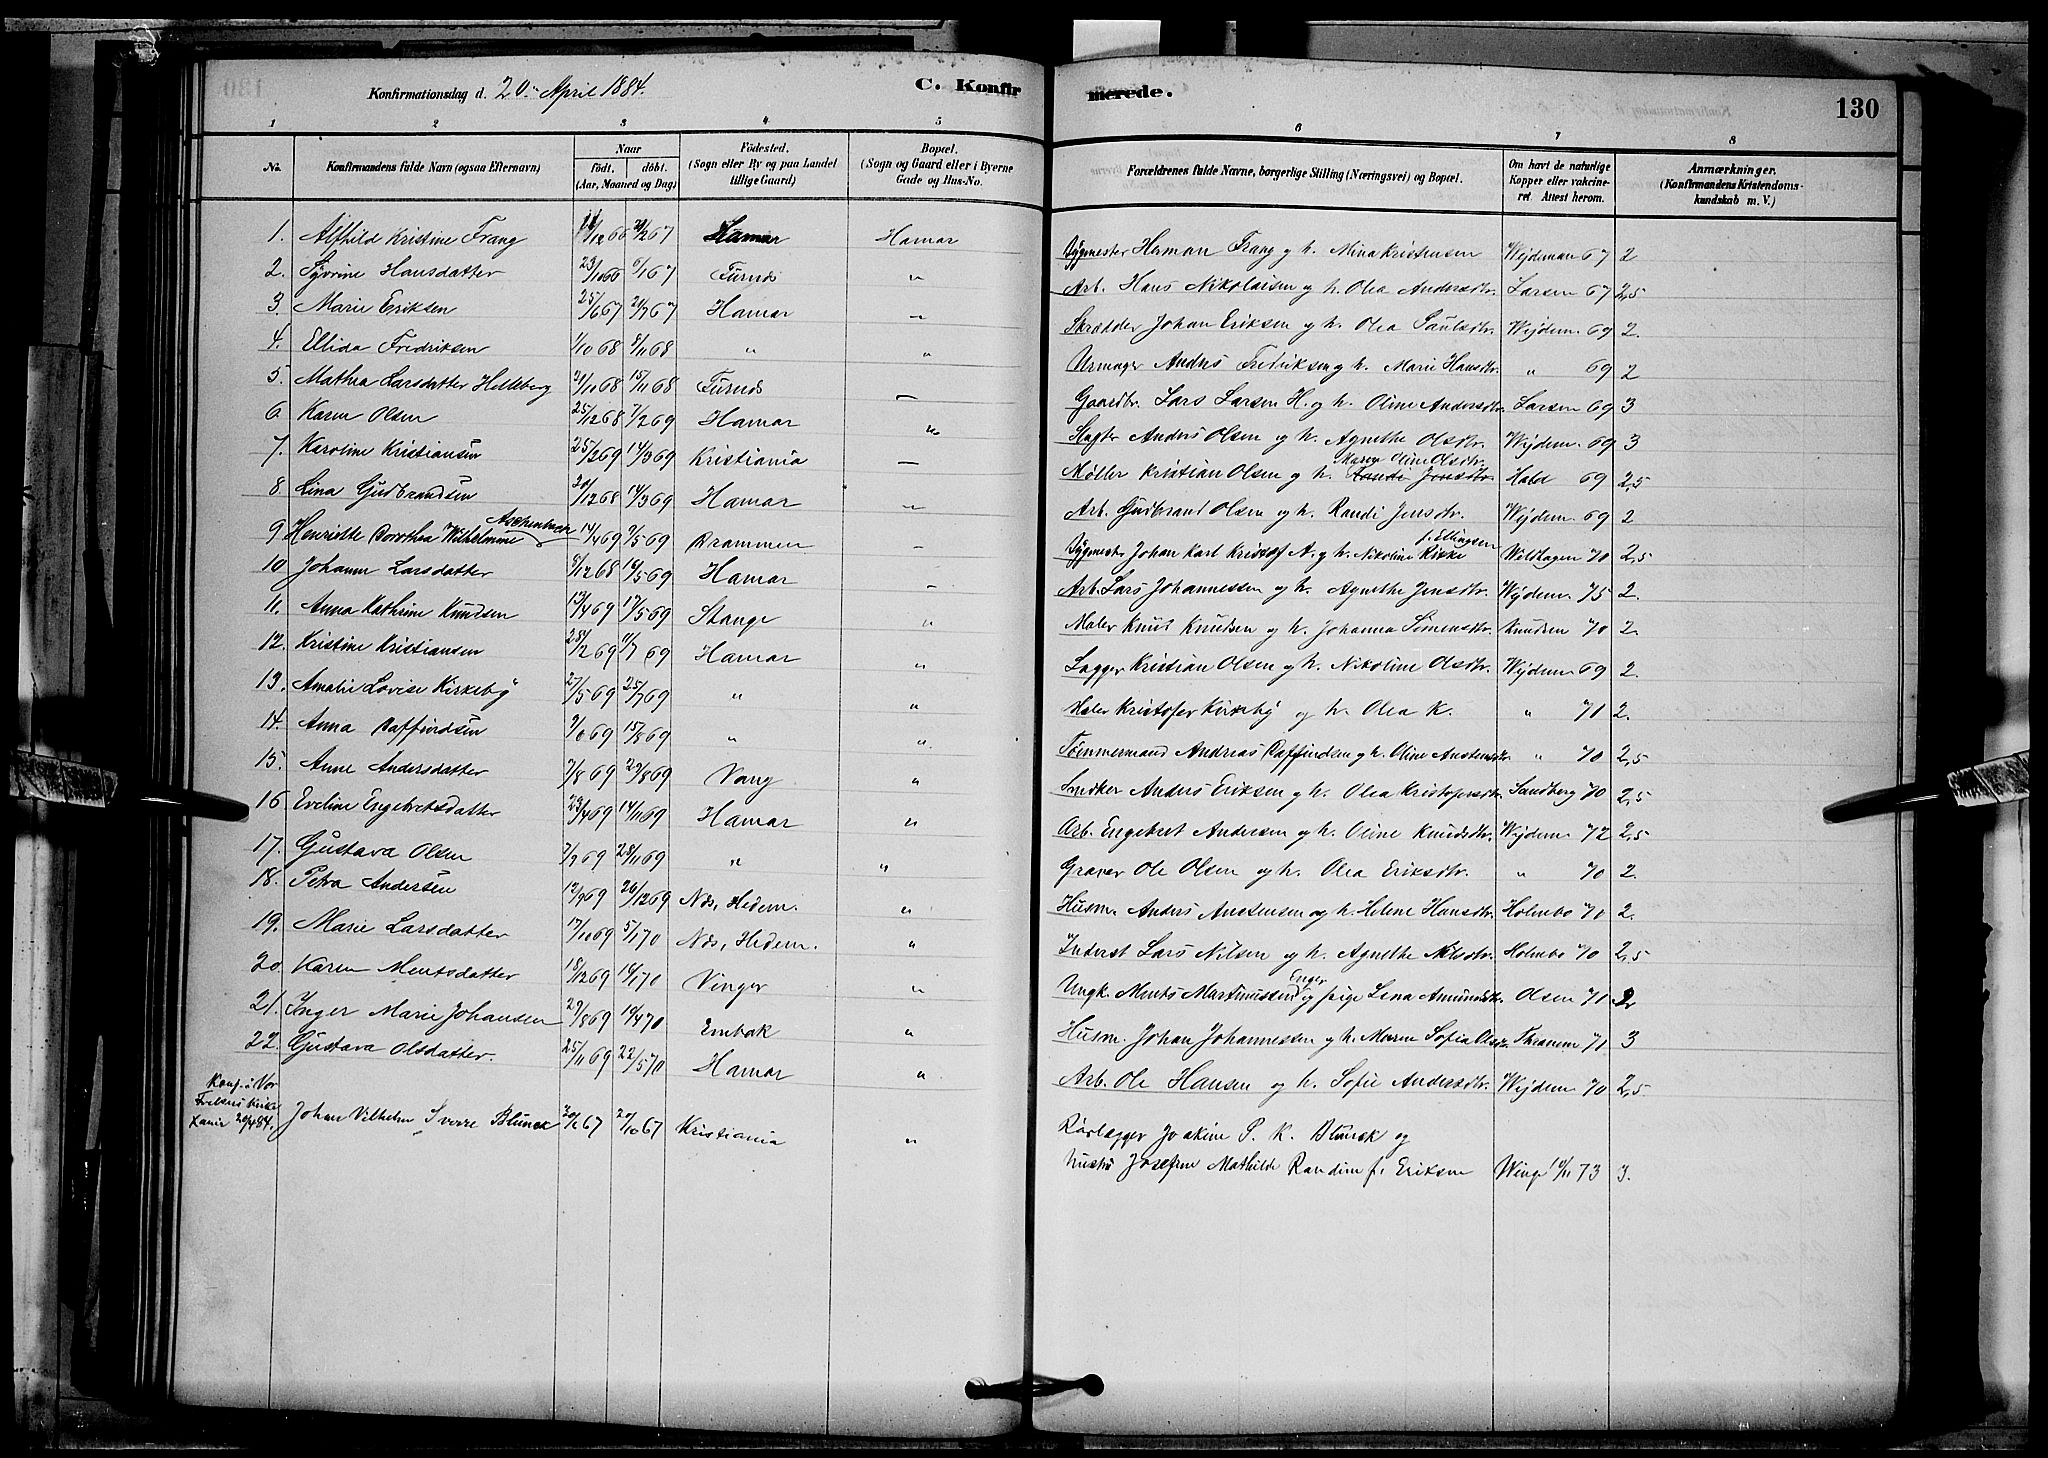 Konfirmationsdag d. 20. April 1884.
C. Konfirmerede.
130
1 2 3 4 5 6 7 8
No.
Konfirmandens fulde Navn (ogsaa Efternavn)
Naar
født. døbt.
(Aar, Maaned og Dag)
Fødested.
(Sogn eller By og paa Landet tillige Gaard)
Bopæl.
(Sogn og Gaard eller i Byerne Gade og Hus-No.
Forældrenes fulde Navne, borgerlige Stilling (Næringsvei) og Bopæl.
Om havt de naturlige Kopper eller vakcineret. Attest herom.
Anmærkninger.
(Konfirmandens Kristendomskundskab m. V.)
1. Alfhild Kristine Frang 12 66 2 67 Hamar Hamar Bygmester Herman Frang og h. Mina Kristensen Wejdeman 67 2
2. Syverine Hansdatter 23/10 66 6/1 67 Furnes " Arb. Hans Nikolaisen og h. Olea Andersdtr. Larsen 67 2,5
3. Marie Eriksen 25/6 67 21/7 67 Hamar " Skrædder Johan Eriksen og h. Olea Paulsdtr. Wejdem. 69 2.
4. Ellida Fredriksen 1/10 68 8/11 68 " " Urmager Anders Fredriksen og h. Marie Hansdtr. " 69 2
5. Mathea Larsdatter Helleberg 21/10 68 15/11 68 Furnes " Gaardbr. Lars Larsen H. og h. Oline Andersdtr. Larsen 69 3
6. Karen Olsen 25/12 68 7/2 69 Hamar " Slagter Anders Olsen og h. Agnethe Olsdtr. Wejdem. 69 3
7. Karoline Kristiansen 25/2 69 14/3 69 Kristiania " Møller Kristian Olsen og h. Maren Oline Olsdtr. Hald 69 2,5
8. Lina Gudbrandsen 20/12 68 14/3 69 Hamar " Arb. Gudbrand Olsen og h. Randi Jensdtr. Wejdem. 69 2
9. Henriette Dorothea Wilhelmine Aschenbach 14/4 69 9/5 69 Drammen " Bygmester Johan Karl Kristof A. og h. Nikoline Rikke f. Ellingsen 70 2,5
10. Johanne Larsdatter 9/12 68 16/5 69 Hamar " Arb. Lars Johannessen og h. Agnethe Jensdtr. Wejdem. 75 2.
11. Anna Kathrine Knudsen 13/4 69 17/5 69 Stange " Maler Knut Knudsen og h. Johanna Simensdtr. Knudsen 70 2.
12. Kristine Kristiansen 28/2 69 11/7 69 Hamar " Lagger Kristian Olsen og h. Nikoline Olsdtr. Wejdem 69 2.
13. Amalie Lovise Kirkeby 27/5 69 25/7 69 " " Maler Kristofer Kirkeby og h. Olea K. " 71 2.
14. Anna Daffindsen 69 15/8 69 " " Tømmermand Andreas Daffindsen og h. Oline " 70 2,5
15. Anne Andersdatter 7/8 69 29/8 69 Vang " Snedker Anders Eriksen og h. Olea Kristofersdtr. Sandberg 70 2,5
16. Eveline Engebretsdatter 23/4 69 14/11 69 Hamar " Arb. Engebret Andersen og h. Oline Knudsdtr. Wejdem. 72 2,5
17. Gustava Olsen 7/9 69 28/11 69 " " Graver Ole Olsen og h. Olea Eriksdtr. " 70 2.
18. Petra Andersen 12/9 69 26/12 69 Næs, Hedem. " Husm. Anders Austensen og h. Helene Hansdtr. Holmbo 70 2.
19. Marie Larsdatter 17/10 69 5/1 70 Næs, Hedem. " Inderst Lars Nilsen og h. Agnethe Nilsdtr. Holmbo 70 2,5
20. Karen Mentsdatter 18/12 69 16/1 70 Vinger " Ungk. Ments Martinussen Enger og pige Lena Amundsdtr. Olsen 71 2
21. Inger Marie Johansen 29/8 69 10/4 70 Embak " Husm. Johan Johannessen og h. Maren Sofia Olsdtr. 71 3
22. Gustava Olsdatter. 25/11 69 22/5 70 Hamar " Arb. Ole Hansen og h. Sofie Andersdtr. Wejdem 70 2,5
Konf. i Vor Frelsers Kirke Xania 20/4 84. Johan Vilhelm Sverre Blunck 67 20/10 67 Kristiania " Rørlægger Joakim P. K. Blunck og
hustru Josefine Mathilde Randine f. Eriksen Winge 73 3.